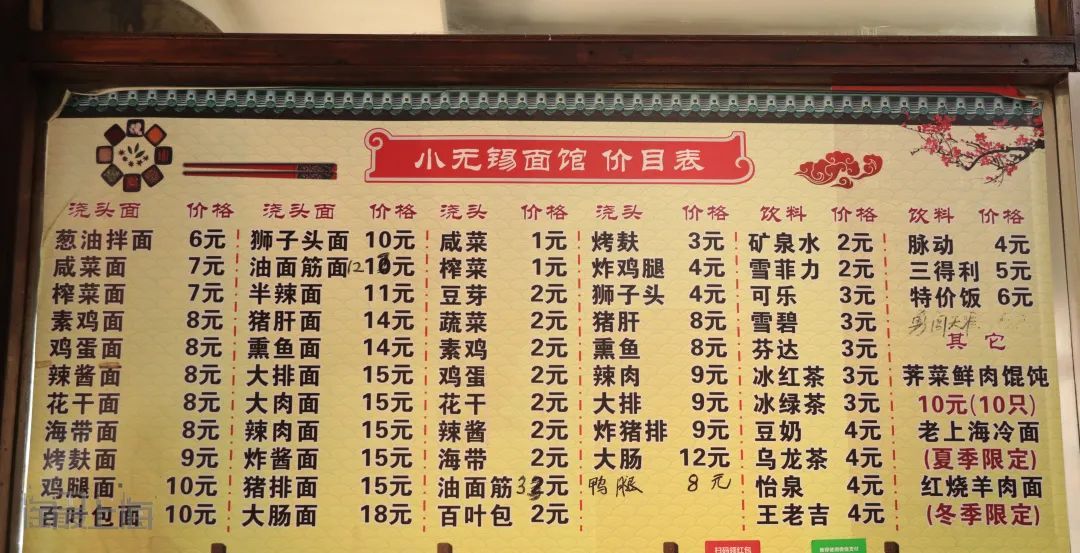 小无锡面馆 价目表
浇头面 价格
葱油拌面 6元
咸菜面 7元
榨菜面 7元
素鸡面 8元
鸡蛋面 8元
辣酱面 8元
花干面 8元
海带面 8元
烤麸面 9元
鸡腿面 10元
百叶包面 10元
浇头面 价格
狮子头面 10元
油面筋面 12元
半辣面 11元
猪肝面 14元
熏鱼面 14元
大排面 15元
大肉面 15元
辣肉面 15元
炸酱面 15元
猪排面 15元
大肠面 18元
浇头 价格
咸菜 1元
榨菜 1元
豆芽 2元
蔬菜 2元
素鸡 2元
鸡蛋 2元
花干 2元
辣酱 2元
海带 2元
油面筋 3元
百叶包 2元
浇头 价格
烤麸 3元
炸鸡腿 4元
狮子头 4元
猪肝 8元
熏鱼 8元
辣肉 9元
大排 9元
炸猪排 9元
大肠 12元
鸭腿 8元
饮料 价格
矿泉水 2元
雪菲力 2元
可乐 3元
雪碧 3元
芬达 3元
冰红茶 3元
冰绿茶 3元
豆奶 4元
乌龙茶 4元
怡泉 4元
王老吉 4元
饮料 价格
脉动 4元
三得利 5元
特价饭 6元
其它
荠菜鲜肉馄饨
10元(10只)
老上海冷面
(夏季限定)
红烧羊肉面
(冬季限定)
扫码领红包